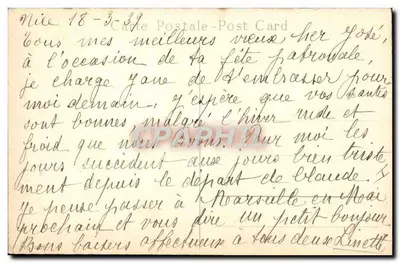 Nice 18-3-39
Carte Postale - Post Card
Tous mes meilleurs vœux, cher José,
à l'occasion de ta fête patronale,
je charge Jane de t'embrasser pour
moi demain, j'espère que vos santés
sont bonnes malgré l'hiver rude et
froid que nous avons. Pour moi les
jours succèdent aux jours bien triste
ment depuis le départ de Claude.
Je pense passer à Marseille en Mai
prochain et vous dire un petit bonjour
Bons baisers affectueux à tous deux Linette